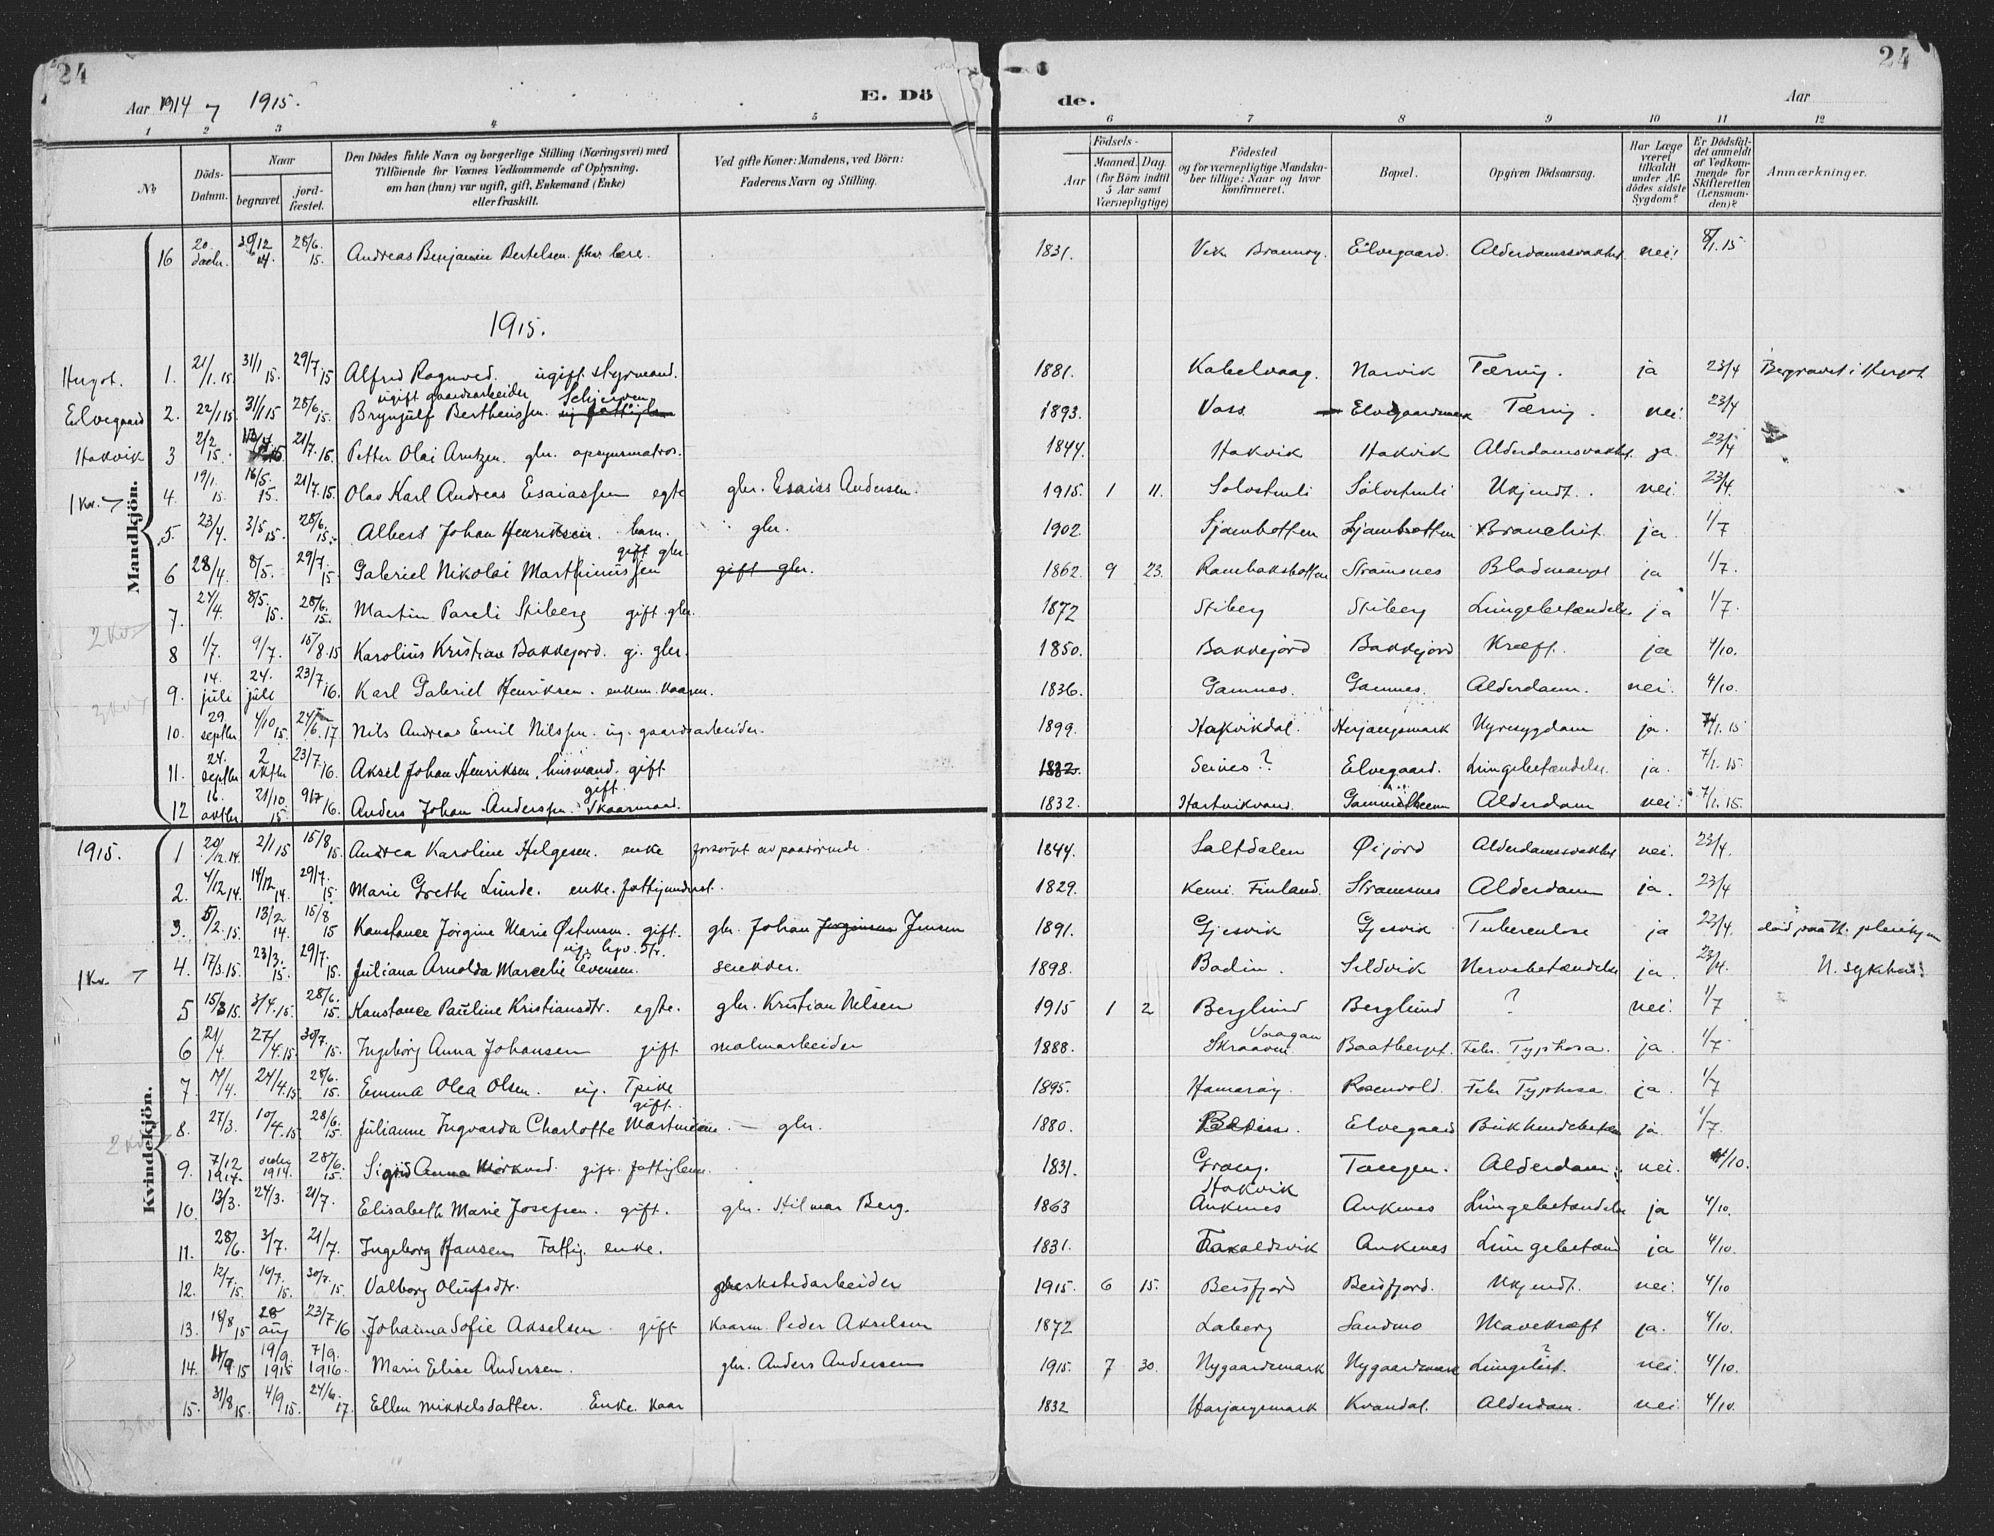 24
24
Aar 1914 og 1915.
E. Dö
de.
Aar
1 2 3 4 5 6 7 8 9 10 11 12
No
Döds-Datum.
Naar
begravet.
jord-fæstet.
Den Dödes fulde Navn og borgerlige Stilling (Næringsvei) med
Tilföiende for Voxnes Vedkommende af Oplysning,
om han (hun) var ugift, gift, Enkemand (Enke)
eller fraskilt.
Ved gifte Koner: Mandens, ved Börn:
Faderens Navn og Stilling.
Födsels-
Aar
Maaned. Dag.
(for Börn indtil
5 Aar samt
Værnepligtige)
Födested
og for værnepligtige Mandska-
ber tillige: Naar og hvor
konfirmeret.
Bopæl.
Opgiven Dödsaarsag.
Har Læge
været
tilkaldt
under Af-
dödes sidste
Sygdom?
Er Dödsfal-
det anmeldt
af Vedkom-
mende for
Skifteretten
(Lensman-
den)?
Anmærkninger.
Mandkjön.
16 20. decbr. 28/6 15. Andreas Benjamin Bertelsen 1831. Elvegaard. Alderdomssvakhet nei. 8/1.15
1915.
Herjot. 1. 21/1.15 31/1 15. 29/7 15 Alfred Ragnved. ugift styrmand. 1881. Kabelvaag. Narvik Tæring. ja 23/4
Elvegaard 2. 22/1 15 31/1 15 28/6 15. ugift gaardsarbeider Brynjulf Berthenssen. 1893. Voss Elvegaardsmark Tæring. nei. 23/4
Hakvik 3 2/2 15. 21/7.15. Petter Olai Arntzen. 1844. Hakvik Hakvik Alderdomsvakhet. ja. 23/4
1 Kv. 4. 19/1. 15 16/5. 15. 21/7.15. Olav Karl Andreas Esaiassen egte gbr. Esaias Andersen. 1915. 1 11. Ukjendt. nei 23/4.
5. 23/4. 3/5 15. 28/6. 15. Albert Johan Henriksen. barn. gbr. 1902 ja. 1/7
6 28/4. 8/5. 29/7. 15. Gabriel Nikolai Marthinussen gift gbr. gift gbr. 1862. 9 23. Straumsnes ja 1/7.
7. 27/4. 8/5. 15. 28/6. 15. Martin Pareli Stiberg gift gbr. 1872 Stiberg Stiberg Lungebetændelse ja 1/7.
8 1/7. 9/7. 15/8.15 Karolius Kristian Bakkejord. g. gbr. 1850. Bakkejord Bakkejord Kræft. ja 4/10.
9. 14. juli 24. juli 23/7.16. Karl Gabriel Henriksen. enkem. kaarm. 1836. Gamnes. Gamnes. Alderdom. nei. 4/10.
10. 29. septbr 4/10 15. Nils Andreas Emil Nilssen. ug. gaardsarbeider. 1899. Hakvikdal. Herjangsmark Nyresygdom ja.
11. 24. septbr 2 oktbr 23/7.16. Aksel Johan Henriksen, husmand. gift 1832. Seines? Elvegaard. Lungebetændelse. ja. 7/1.15
12 16. oktbr 21/10 15. 16. Anders Johan Anderssen. gift. kaarmand. 1832. Hartvikvand. Alderdom nei. 7/1.15.
Kvindekjön.
1915. 1 20/12.14. 2/1 15 15/8 15. Andrea Karoline Helgesen. enke forsörget av paarörende. 1844. Saltdalen Øijord Alderdomssvakhet nei. 23/4.
2. 4/12 14. 14/12 14. 29/7. 15. Marie Grethe Lunde. enke. fattigunderst. 1829. Kemi. Finland. Straumsnes Alderdom ja. 23/4
3. 5/2.15. 13/2 14. 15/8 15 Konstance Jörgine Marie Østensen. gift. gbr. Johan Jorgensen Jensen 1891. Gjesvik Gjesvik Tuberculose ja 23/4. död paa N. pleiehjem
1 Kv. 4. 17/3.15. 23/3. 15. 29/7. 15. Juliana Arnolda Marcelie Evensen. snekker. 1898. Bodin. Sildvik Nervebetændelse ja. 23/4. N. sykehus.
5 15/3 15. 3/4.15. 28/6. 15. Konstance Pauline Kristiansdtr. egte. gbr. Kristian Nilsen 1915 1 2 Berglund Berglund ? nei. 1/7
6 21/4. 27/4.15. 30/7.15. Ingeborg Anna Johansen gift malmarbeider 1888. Skraaven Vaagan Febr. Typhosa. ja. 1/7
7. 14/4. 24/4.15. 28/6. 15. Emma Olea Olsen. ug. Tpike 1895. Hamaröy. Rosenvold. Febr Typhosa ja. 1/7
8. 27/3. 10/4.15. 28/6. 15. Julianne Ingvarda Charlotte Martinsen gift. — gbr. 1880. Elvegaard ja. 1/7.
9. 7/12 1914. 1914. 28/6. 15. Sigrid Anna Mörkved. gift. fattiglem. 1831. Tangen. Alderdom. nei. 4/10.
10. 13/3. 24/3. 21/7. Elisabeth Marie Josefsen. gift. gbr. Hilmar Berg. 1863 Hakvik Ankenes Ankenes Lungebetændelse ja 4/10.
11. 28/6. 3/7. 21/7. Ingeborg Hansen Fattig. enke. 1831. Ankenes ja 4/10.
12. 12/7 15. 16/7. 15. 30/7. 15. Valborg Olufsdtr. 1915. 6 15. Beisfjord Beisfjord. Ukjendt. nei. 4/10
13. 18/8 15 28 aug 23/7 16 Johanna Sofie Akselsen. gift kaarm. Peder Akselsen 1872 Laberg Sandmo Mavekræft ja. 4/10.
14. 11/9 15 19/9 1915 7/9. 1916. Marie Elise Andersen. gbr. Anders Andersen 1915. 7 30. Nygaardsmark Nygaardsmark Lungebet. ? nei. 4/10
15. 31/8 15. 4/9 15. 24/6. 17. Ellen Mikkelsdatter. Enke. kaar 1832 Herjangsmark Kvandal. Alderdom. nei 4/10.